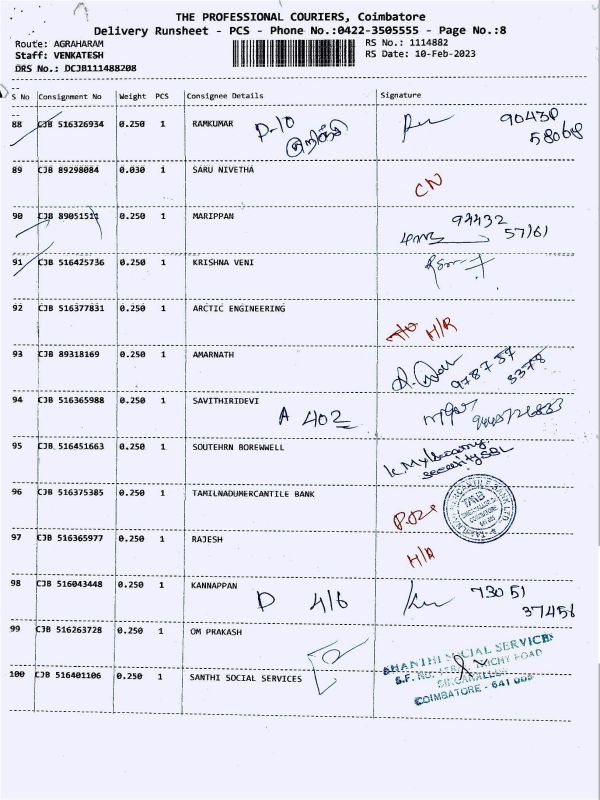 THE PROFESSIONAL COURIERS, Coimbatore
Delivery Runsheet - PCS - Phone No.:0422-3505555 - Page No.:8
Route: AGRAHARAM RS No.: 1114882
Staff: VENKATESH RS Date: 10-Feb-2023
DRS No.: DCJB111488208
S No Consignment No Weight PCS Consignee Details Signature
88 CJB 516326934 0.250 1 RAMKUMAR D-10 90430
58068
89 CJB 89298084 0.030 1 SARU NIVETHA CN
90 CJB 89051511 0.250 1 MARIPPAN 94432
57161
91 CJB 516425736 0.250 1 KRISHNA VENI
92 CJB 516377831 0.250 1 ARCTIC ENGINEERING H/R
93 CJB 89318169 0.250 1 AMARNATH 978757
3378
94 CJB 516365988 0.250 1 SAVITHIRIDEVI A 402
95 CJB 516451663 0.250 1 SOUTEHRN BOREWWELL
96 CJB 516375385 0.250 1 TAMILNADUMERCANTILE BANK TMB
97 CJB 516365977 0.250 1 RAJESH H/R
98 CJB 516043448 0.250 1 KANNAPPAN D 416 73051
37456
99 CJB 516263728 0.250 1 OM PRAKASH
100 CJB 516401106 0.250 1 SANTHI SOCIAL SERVICES
SHANTHI SOCIAL SERVICES
COIMBATORE - 641 005